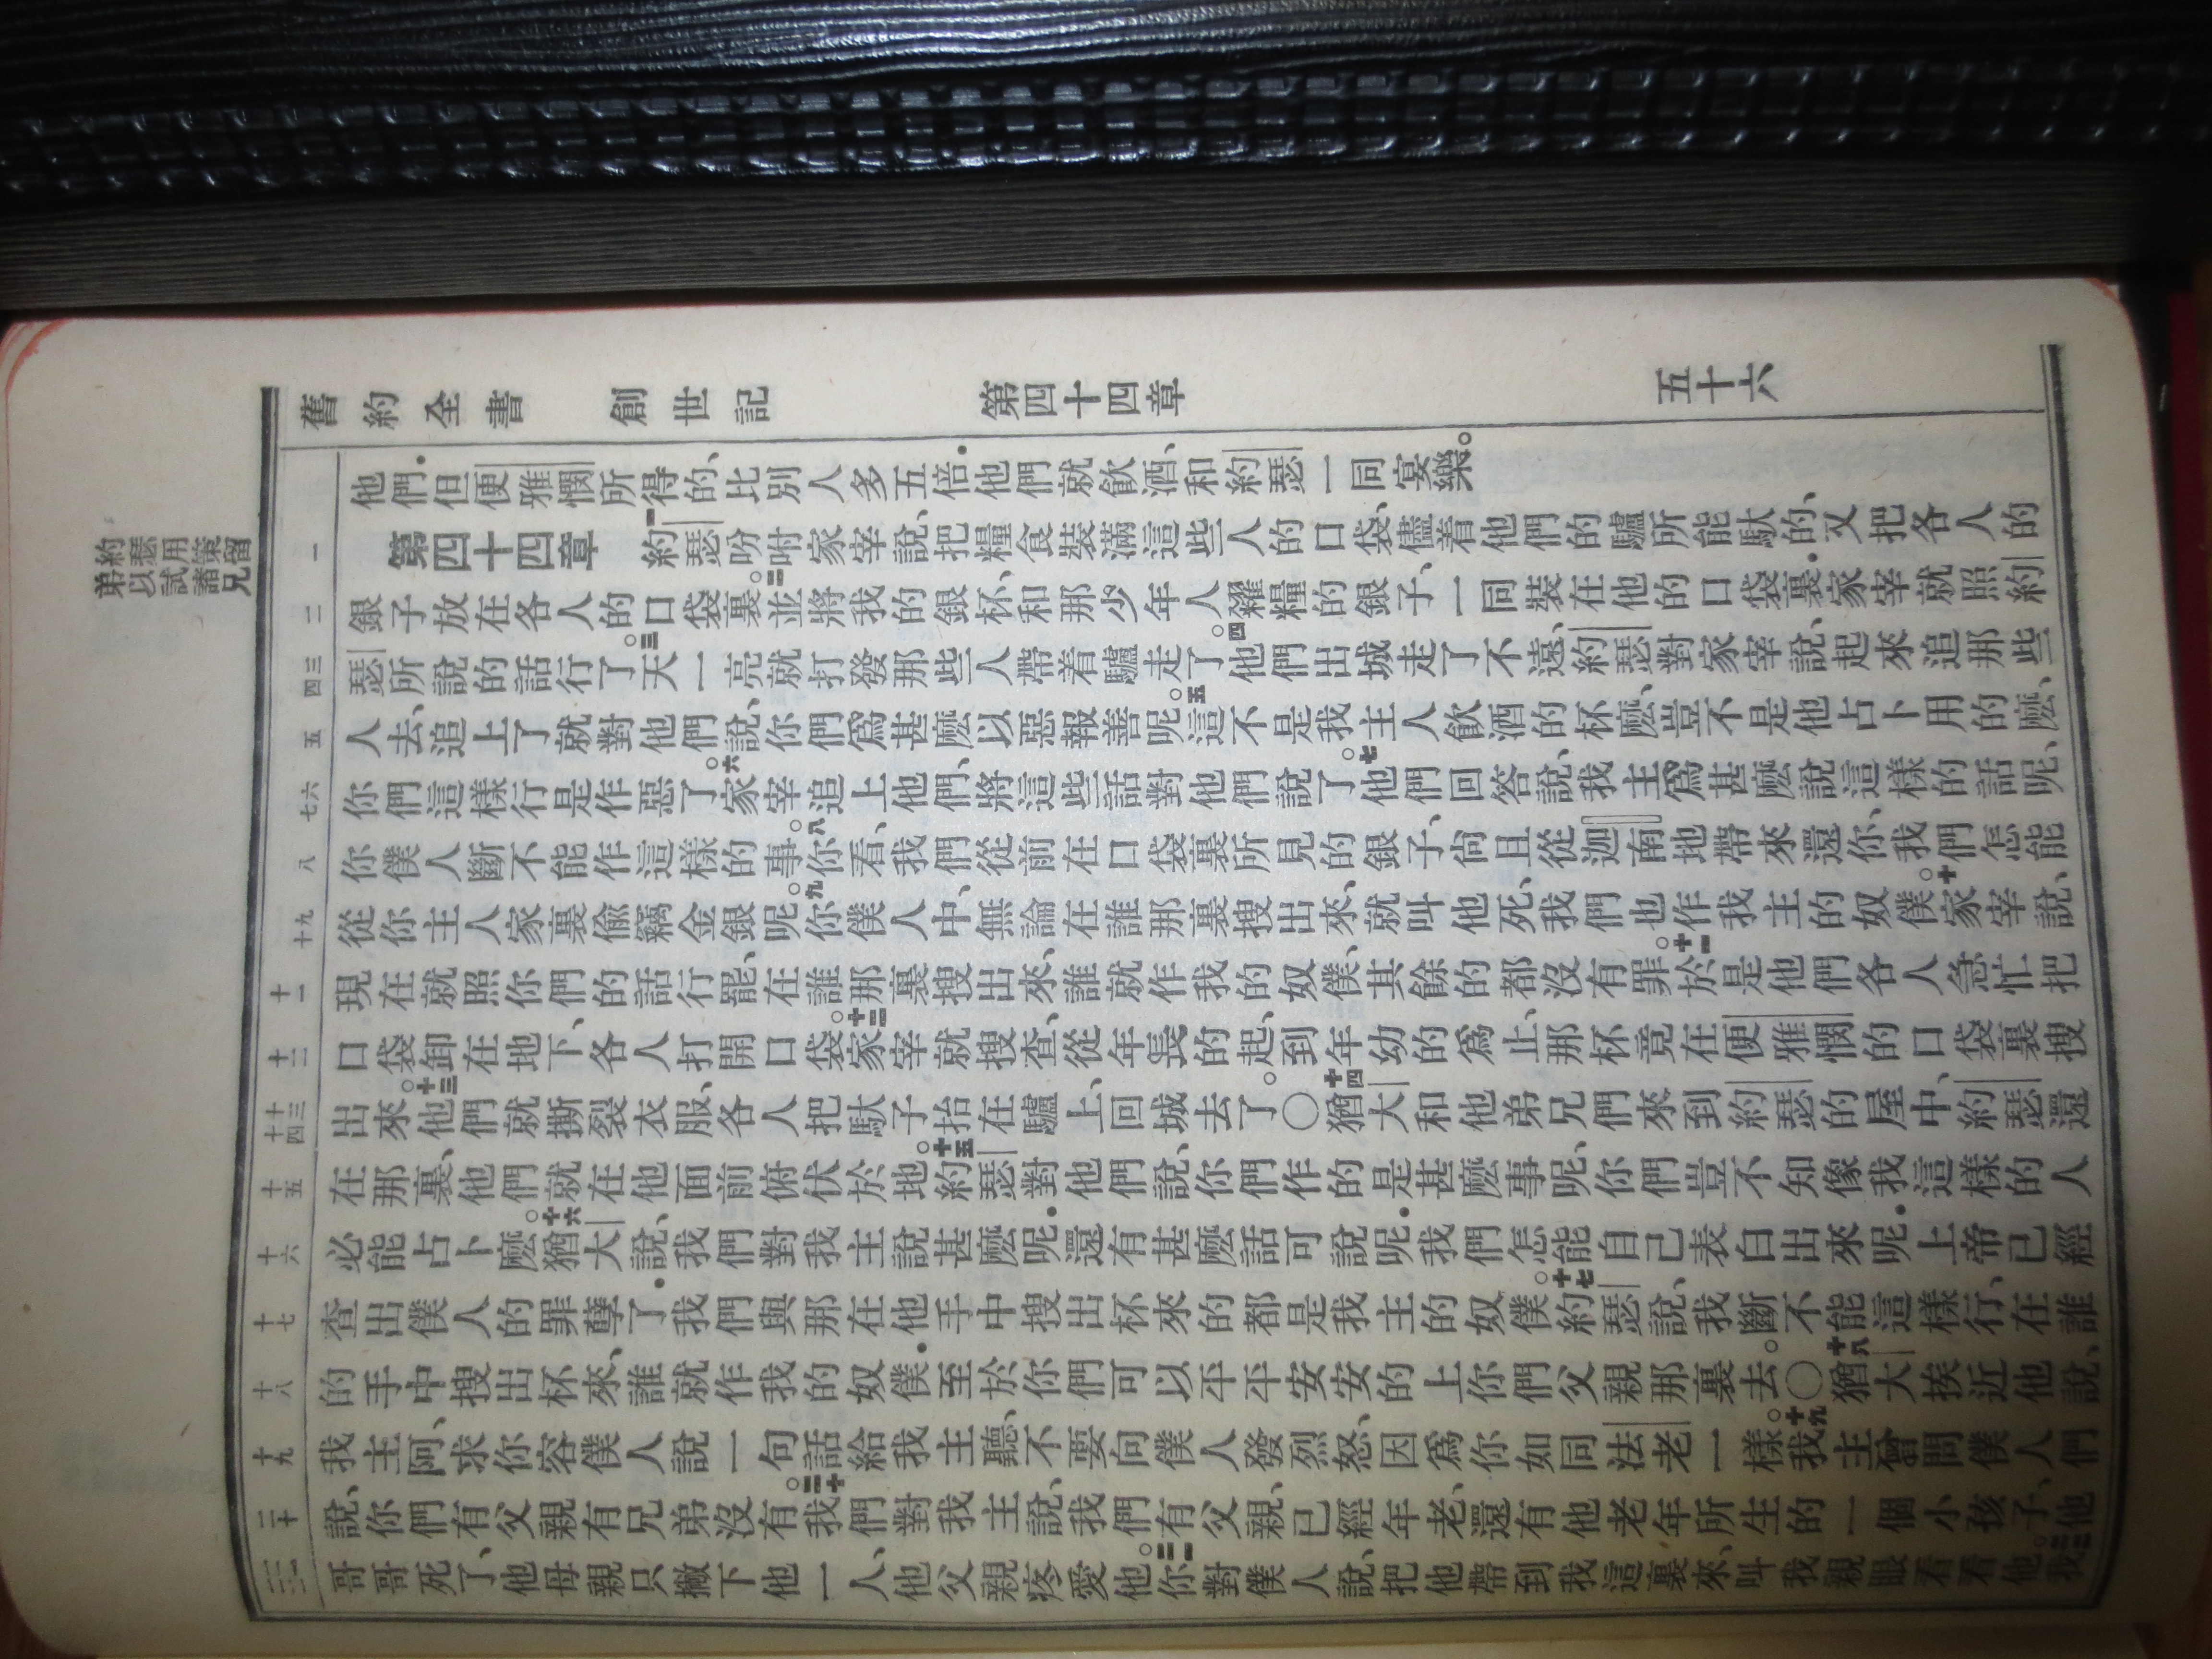 舊約全書 創世記 第四十四章 五十六
約瑟用策留
弟以試諸兄
他們．但便雅憫所得的、比別人多五倍．他們就飲酒、和約瑟一同宴樂。
一 第四十四章 一約瑟吩咐家宰說、把糧食裝滿這些人的口袋、儘着他們的驢所能馱的、又把各人的
二 銀子放在各人的口袋裏。二並將我的銀杯、和那少年人糴糧的銀子、一同裝在他的口袋裏．家宰就照約
三四 瑟所說的話行了。三天一亮就打發那些人帶着驢走了。四他們出城走了不遠、約瑟對家宰說、起來追那些
五 人去、追上了就對他們說、你們爲甚麼以惡報善呢。五這不是我主人飲酒的杯麼、豈不是他占卜用的麼、
六七 你們這樣行是作惡了。六家宰追上他們、將這些話對他們說了。七他們回答說、我主爲甚麼說這樣的話呢、
八 你僕人斷不能作這樣的事。八你看、我們從前在口袋裏所見的銀子、尙且從迦南地帶來還你、我們怎能
九十 從你主人家裏偷竊金銀呢。九你僕人中、無論在誰那裏搜出來、就叫他死、我們也作我主的奴僕。十家宰說、
十一 現在就照你們的話行罷、在誰那裏搜出來、誰就作我的奴僕、其餘的都沒有罪。十一於是他們各人急忙把
十二 口袋卸在地下、各人打開口袋。十二家宰就搜查、從年長的起、到年幼的爲止、那杯竟在便雅憫的口袋裏搜
十三十四 出來。十三他們就撕裂衣服、各人把馱子抬在驢上、回城去了。〇十四猶大和他弟兄們來到約瑟的屋中、約瑟還
十五 在那裏、他們就在他面前俯伏於地。十五約瑟對他們說、你們作的是甚麼事呢、你們豈不知像我這樣的人
十六 必能占卜麼。十六猶大說、我們對我主說甚麼呢．還有甚麼話可說呢．我們怎能自己表白出來呢．上帝已經
十七 查出僕人的罪孽了．我們與那在他手中搜出杯來的都是我主的奴僕。十七約瑟說、我斷不能這樣行、在誰
十八 的手中搜出杯來、誰就作我的奴僕．至於你們可以平平安安的上你們父親那裏去。〇十八猶大挨近他說、
十九 我主阿、求你容僕人說一句話給我主聽、不要向僕人發烈怒、因爲你如同法老一樣。十九我主曾問僕人們
二十 說、你們有父親有兄弟沒有。二十我們對我主說、我們有父親、已經年老、還有他老年所生的一個小孩子、他
哥哥死了、他母親只撇下他一人、他父親疼愛他。二一你對僕人說、把他帶到我這裏來、叫我親眼看看他。二二我